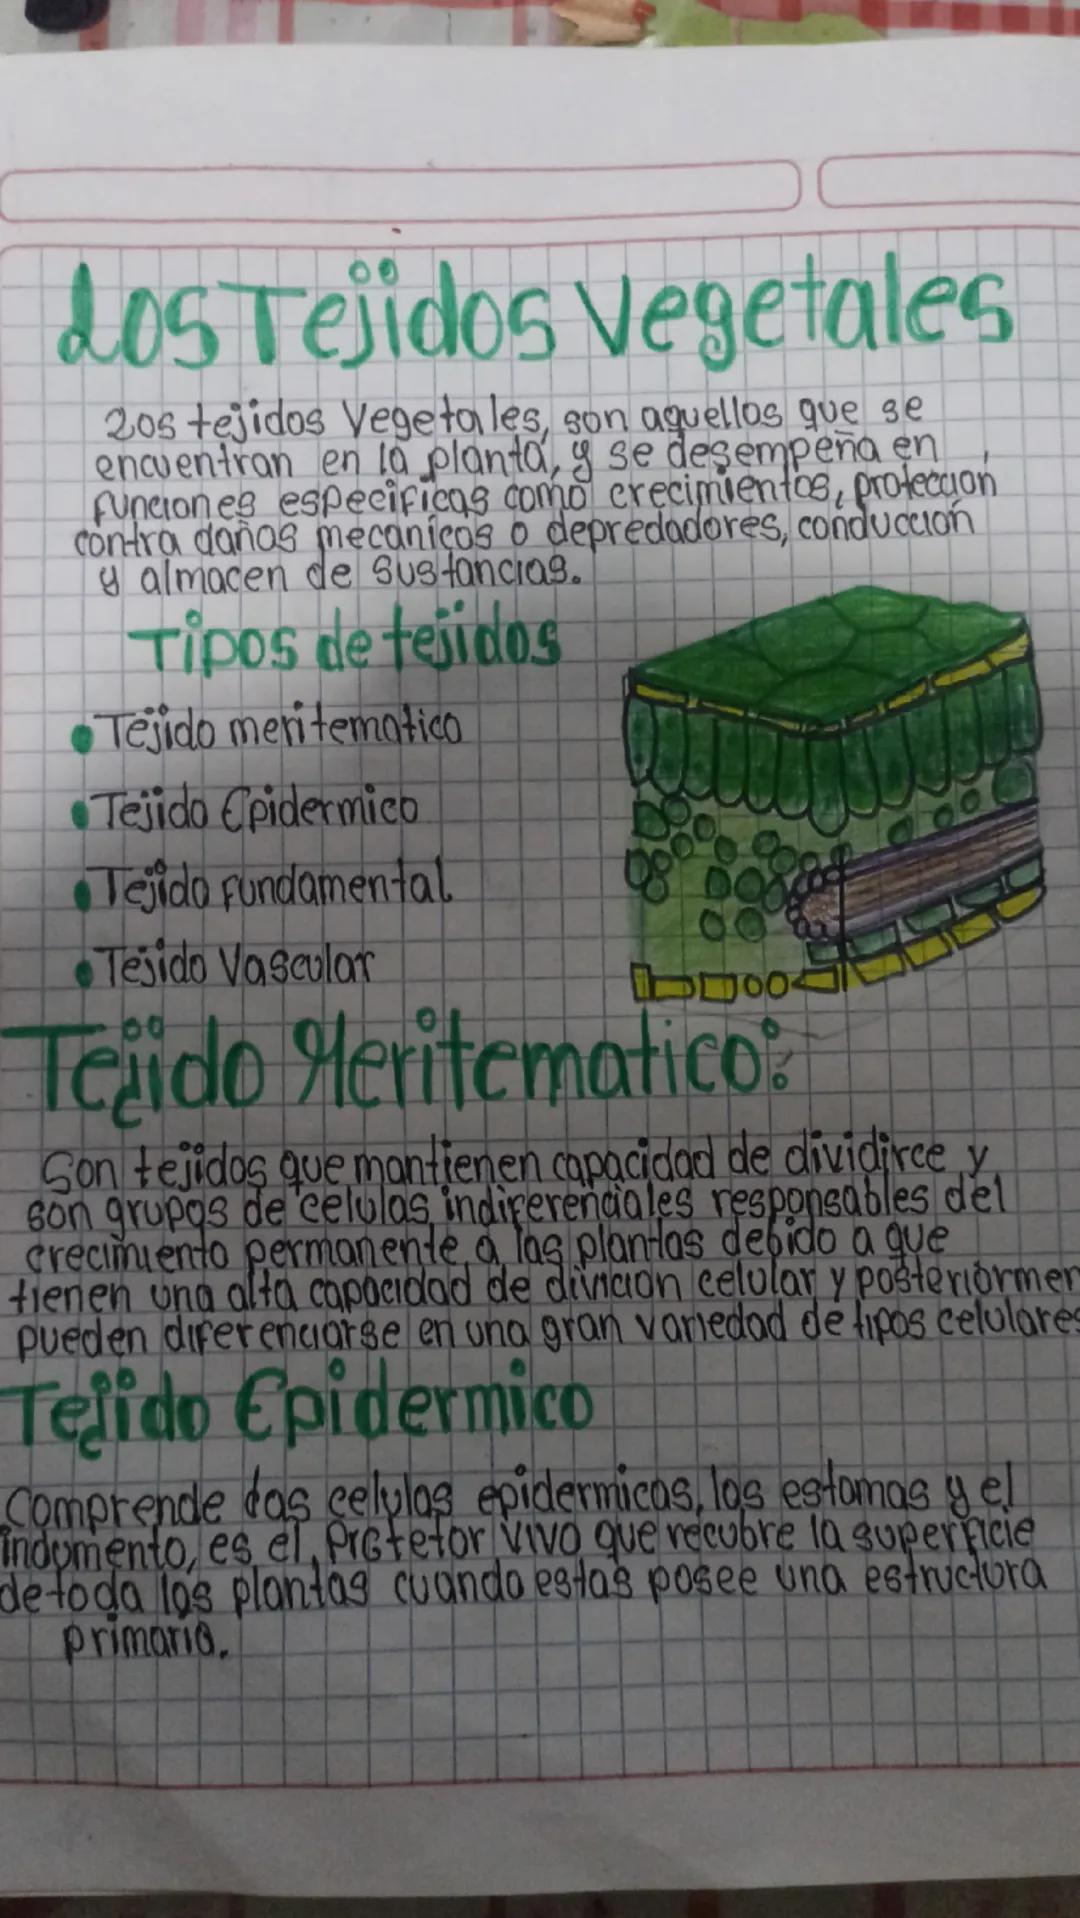 Los Tejidos Vegetales
Los tejidos Vegetales, son aquellos que se
encuentran en la planta, y se desempeña en
funciones especificas como crecimientos, proteccion
contra daños mecanicos o depredadores, conduccion
y almacen de sustancias.
Tipos de tejidos
Tejido meritematico
Tejido Epidermico
Tejido fundamental
Tejido Vascular
Tejido Meritematico:
Son tejidos que mantienen capacidad de dividirce y
son grupos de celulas indiferenciales responsables del
crecimiento permanente a las plantas debido a que
tienen una alta capacidad de divicion celular y posteriormen
pueden diferenciarse en una gran variedad de tipos celulares
Tejido Epidermico
Comprende las celulas epidermicas, las estomas y el
indumento, es el Protetor vivo que recubre la superficie
de toda las plantas cuando estas posee una estructura
primaria.